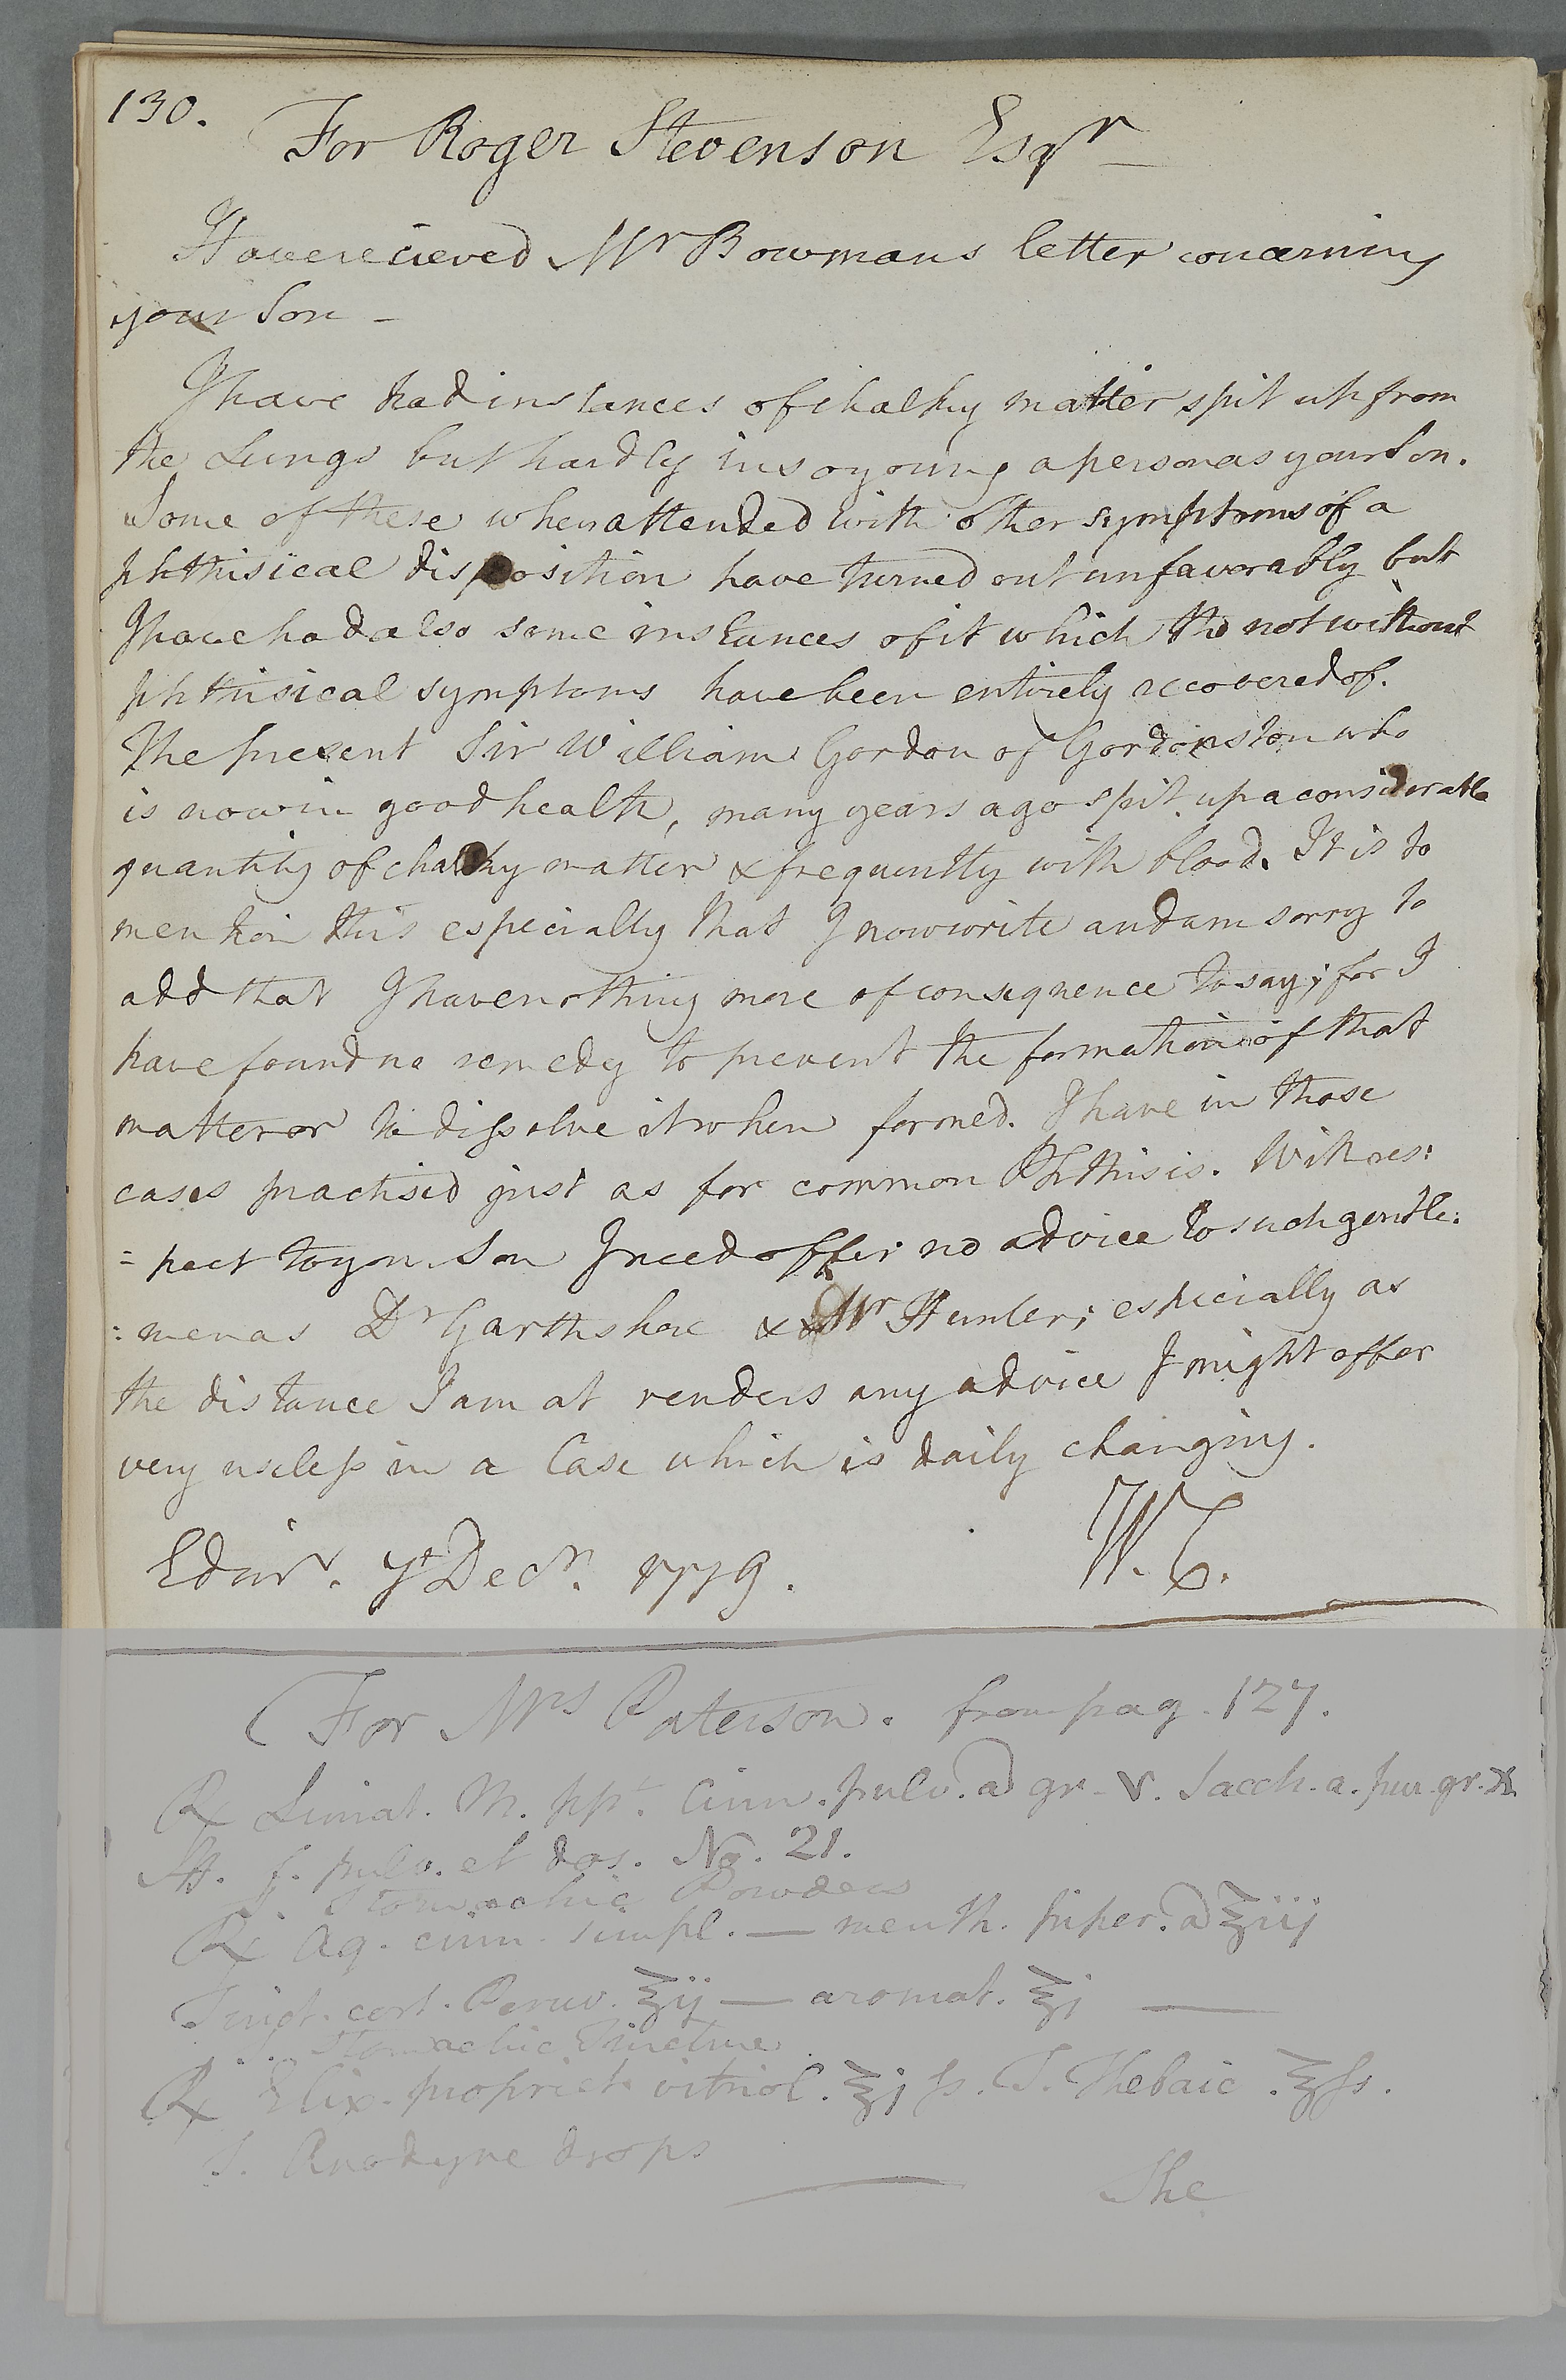 130.
For Roger Stevenson Esqr
Have recieved Mr Bowmans letter concerning
your Son -
I have had instances of chalky matter spit up from
the Lungs but hardly in so young a person as your Son.
Some of these when attended with other symptoms of a
phthisical disposition have turned out unfavorably but
I have had also some instances of it which tho not without
phthisical symptoms have been entirely recovered of.
The present Sir William Gordon of Gordonston who
is now in good health, many years ago spit up a considerable
quantity of chalky matter & frequently with blood. It is to
mention this especially that I now write and am sorry to
add that I have nothing more of consequence to say; for I
have found no remedy to prevent the formation of that
matter or to dissolve it when formed. I have in those
cases practised just as for common Phthisis. With res:
=pect to your Son I need offer no advice to such gentle:
:men as Dr Garthshore & Mr Hunter; especially as
the distance I am at renders any advice I might offer
very useless in a Case which is daily changing.
Edinr. 7t Decr. 1779. W. C.
(For Mrs Paterson. from pag. 127.
℞ Limat. M. ppt. Cinn. pulv. a gr. V. Sacch. a. pur. gr. X
M. f. pulv. et dos. No. 21.
S. Stomachic Powders
℞ Aq. cinn. simpl. — menth. piper. a ℥iij
Tinct. cort. Peruv. ℥ij — aromat. ℥j —
S. Stomachic Tincture
℞ Elix. propriet. vitriol. ℥j ss. T. Thebaic. ℥ss.
S. Anodyne drops
The